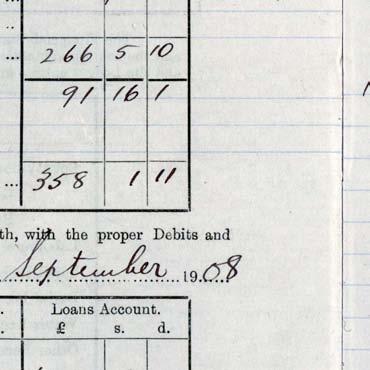 ...
..
... 266 5 10
91 16 1
... 358 1 11
th, with the proper Debits and
September 1908
. Loans Account.
. £ s. d.